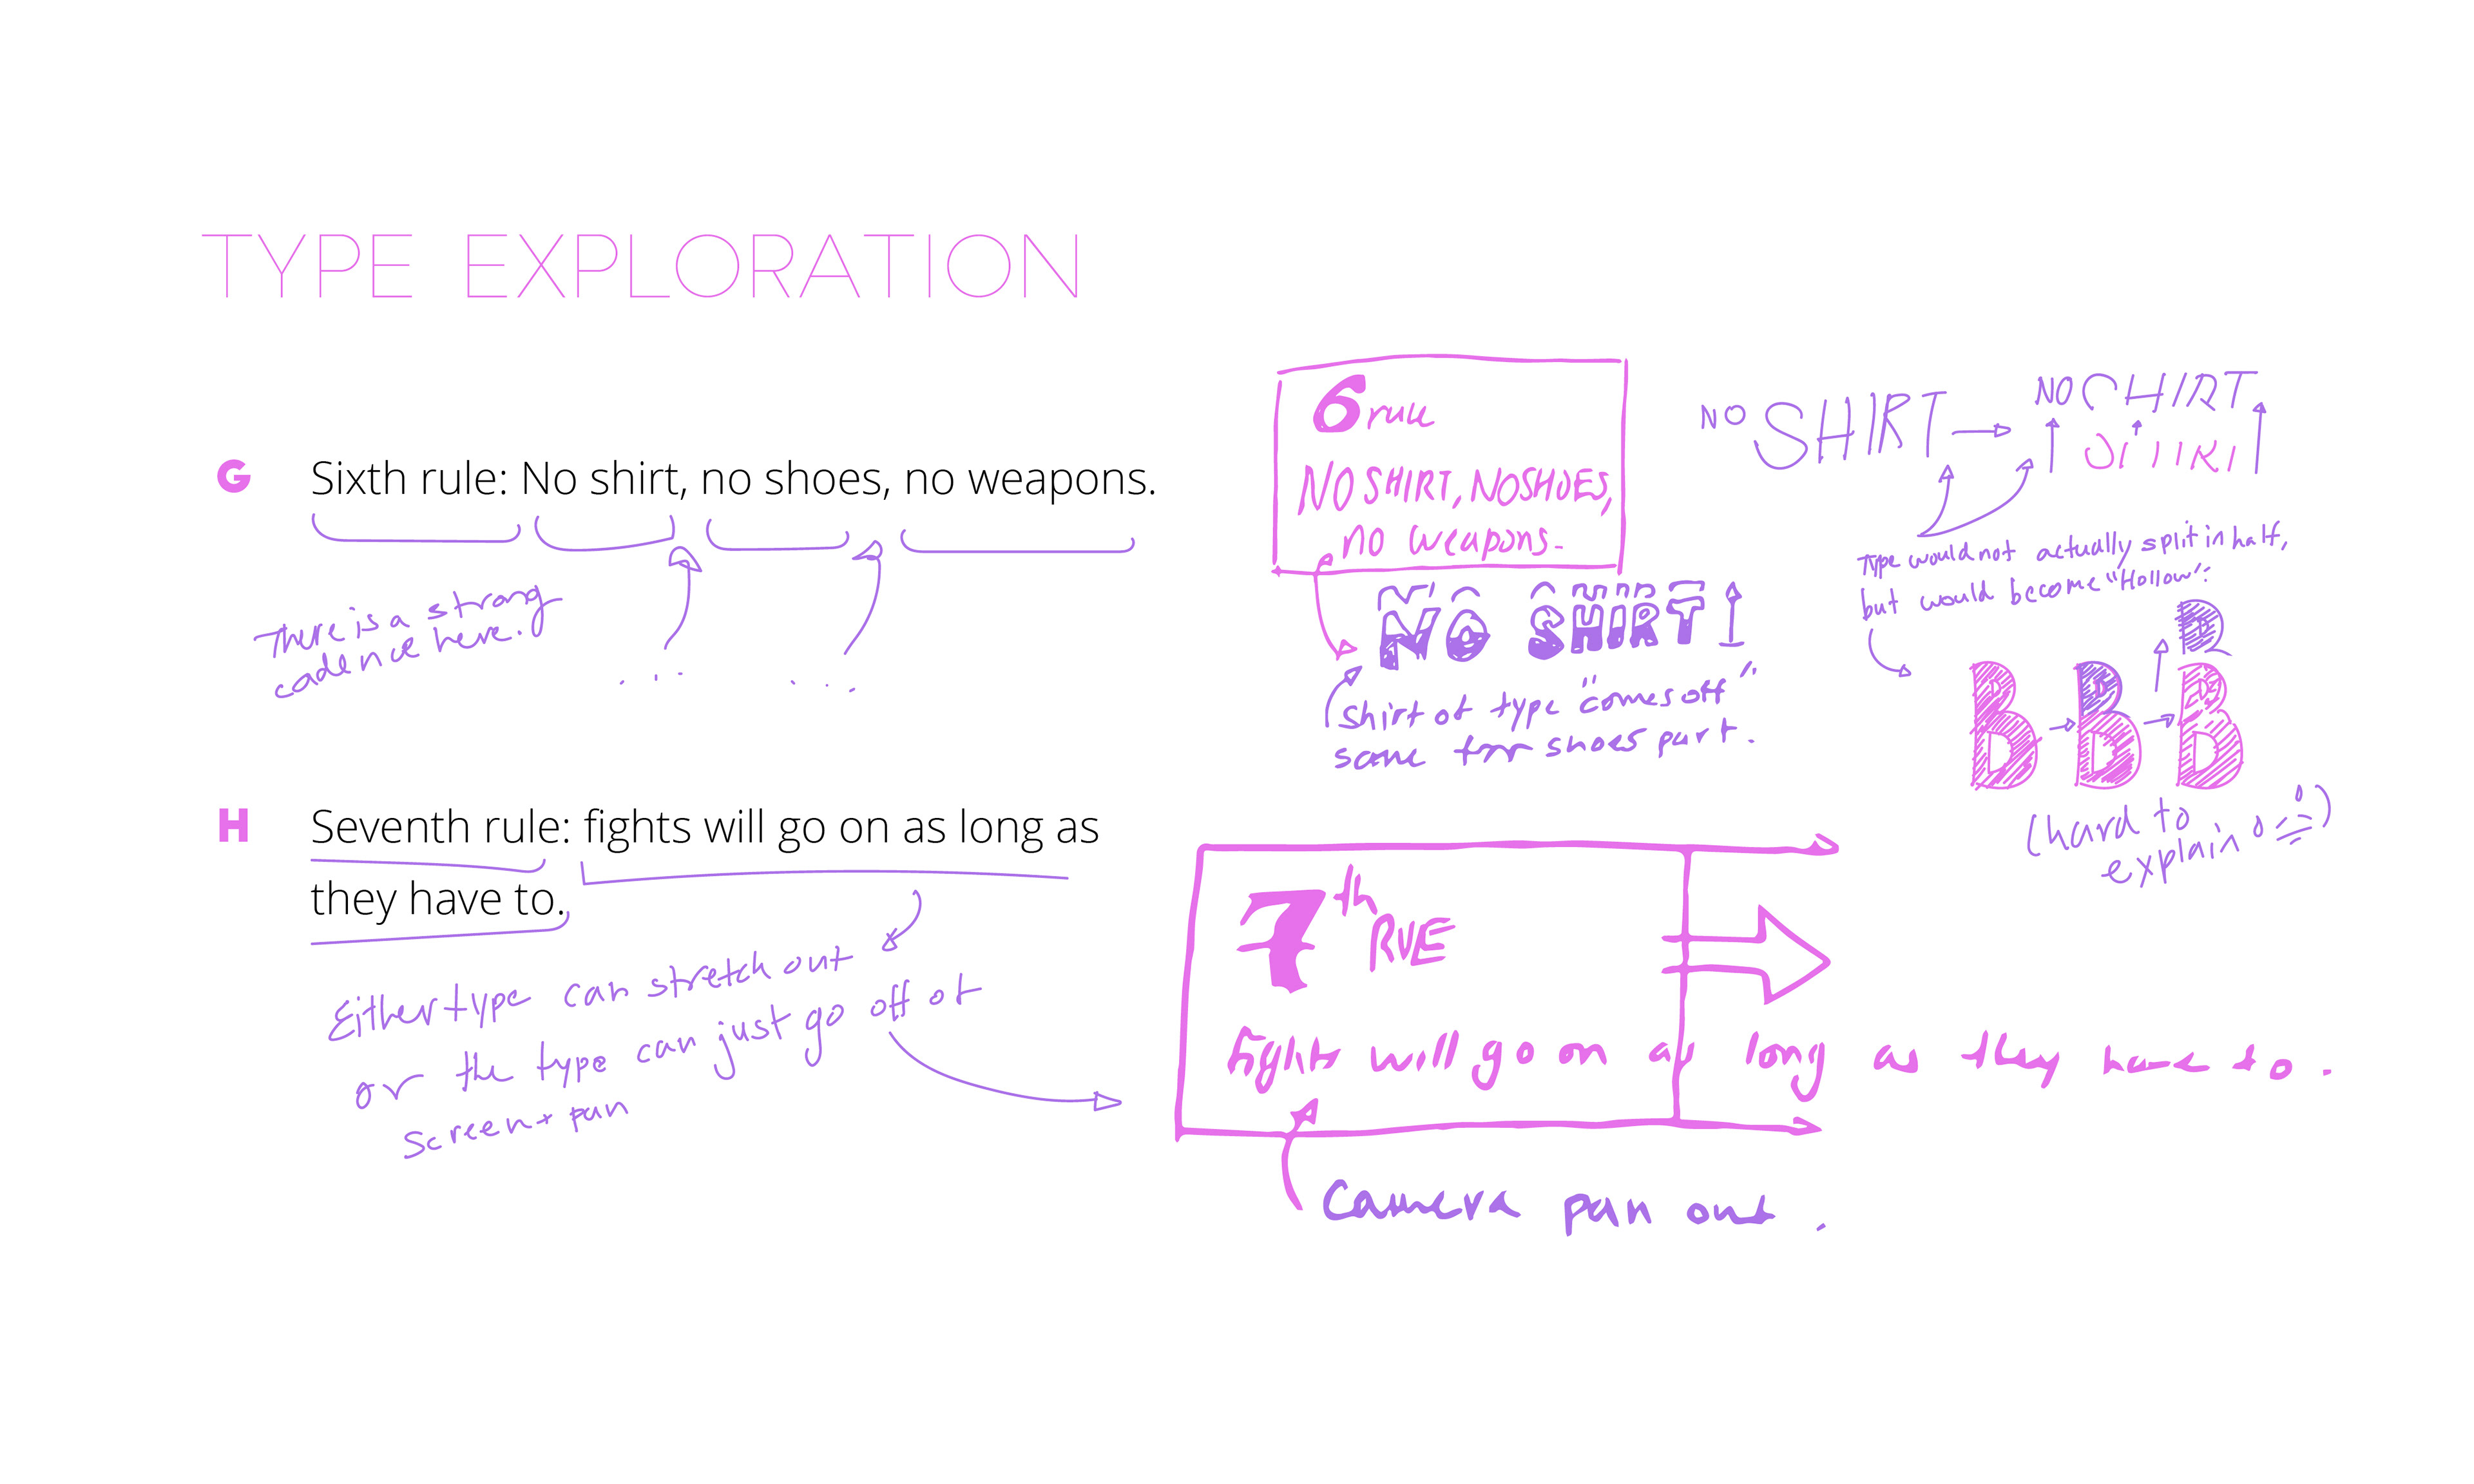 TYPE EXPLORATION
G
Sixth rule: No shirt, no shoes, no weapons.
There is a strong
cadence here.
6 rule
NO SHIRT, NO SHOES,
no weapons.
NO SHIRT
NO SHIRT
SHIRT
Type would not actually split in half,
but would become "Hollow":
NO SHIRT
Shirt of type "comes off".
same for shoes part.
B B B
(hard to
explain)
H
Seventh rule: fights will go on as long as
they have to.
Either type can stretch out
or the type can just go off of
screen + pan
7th RULE
Fights will go on as long as they have to.
Camera pan out.